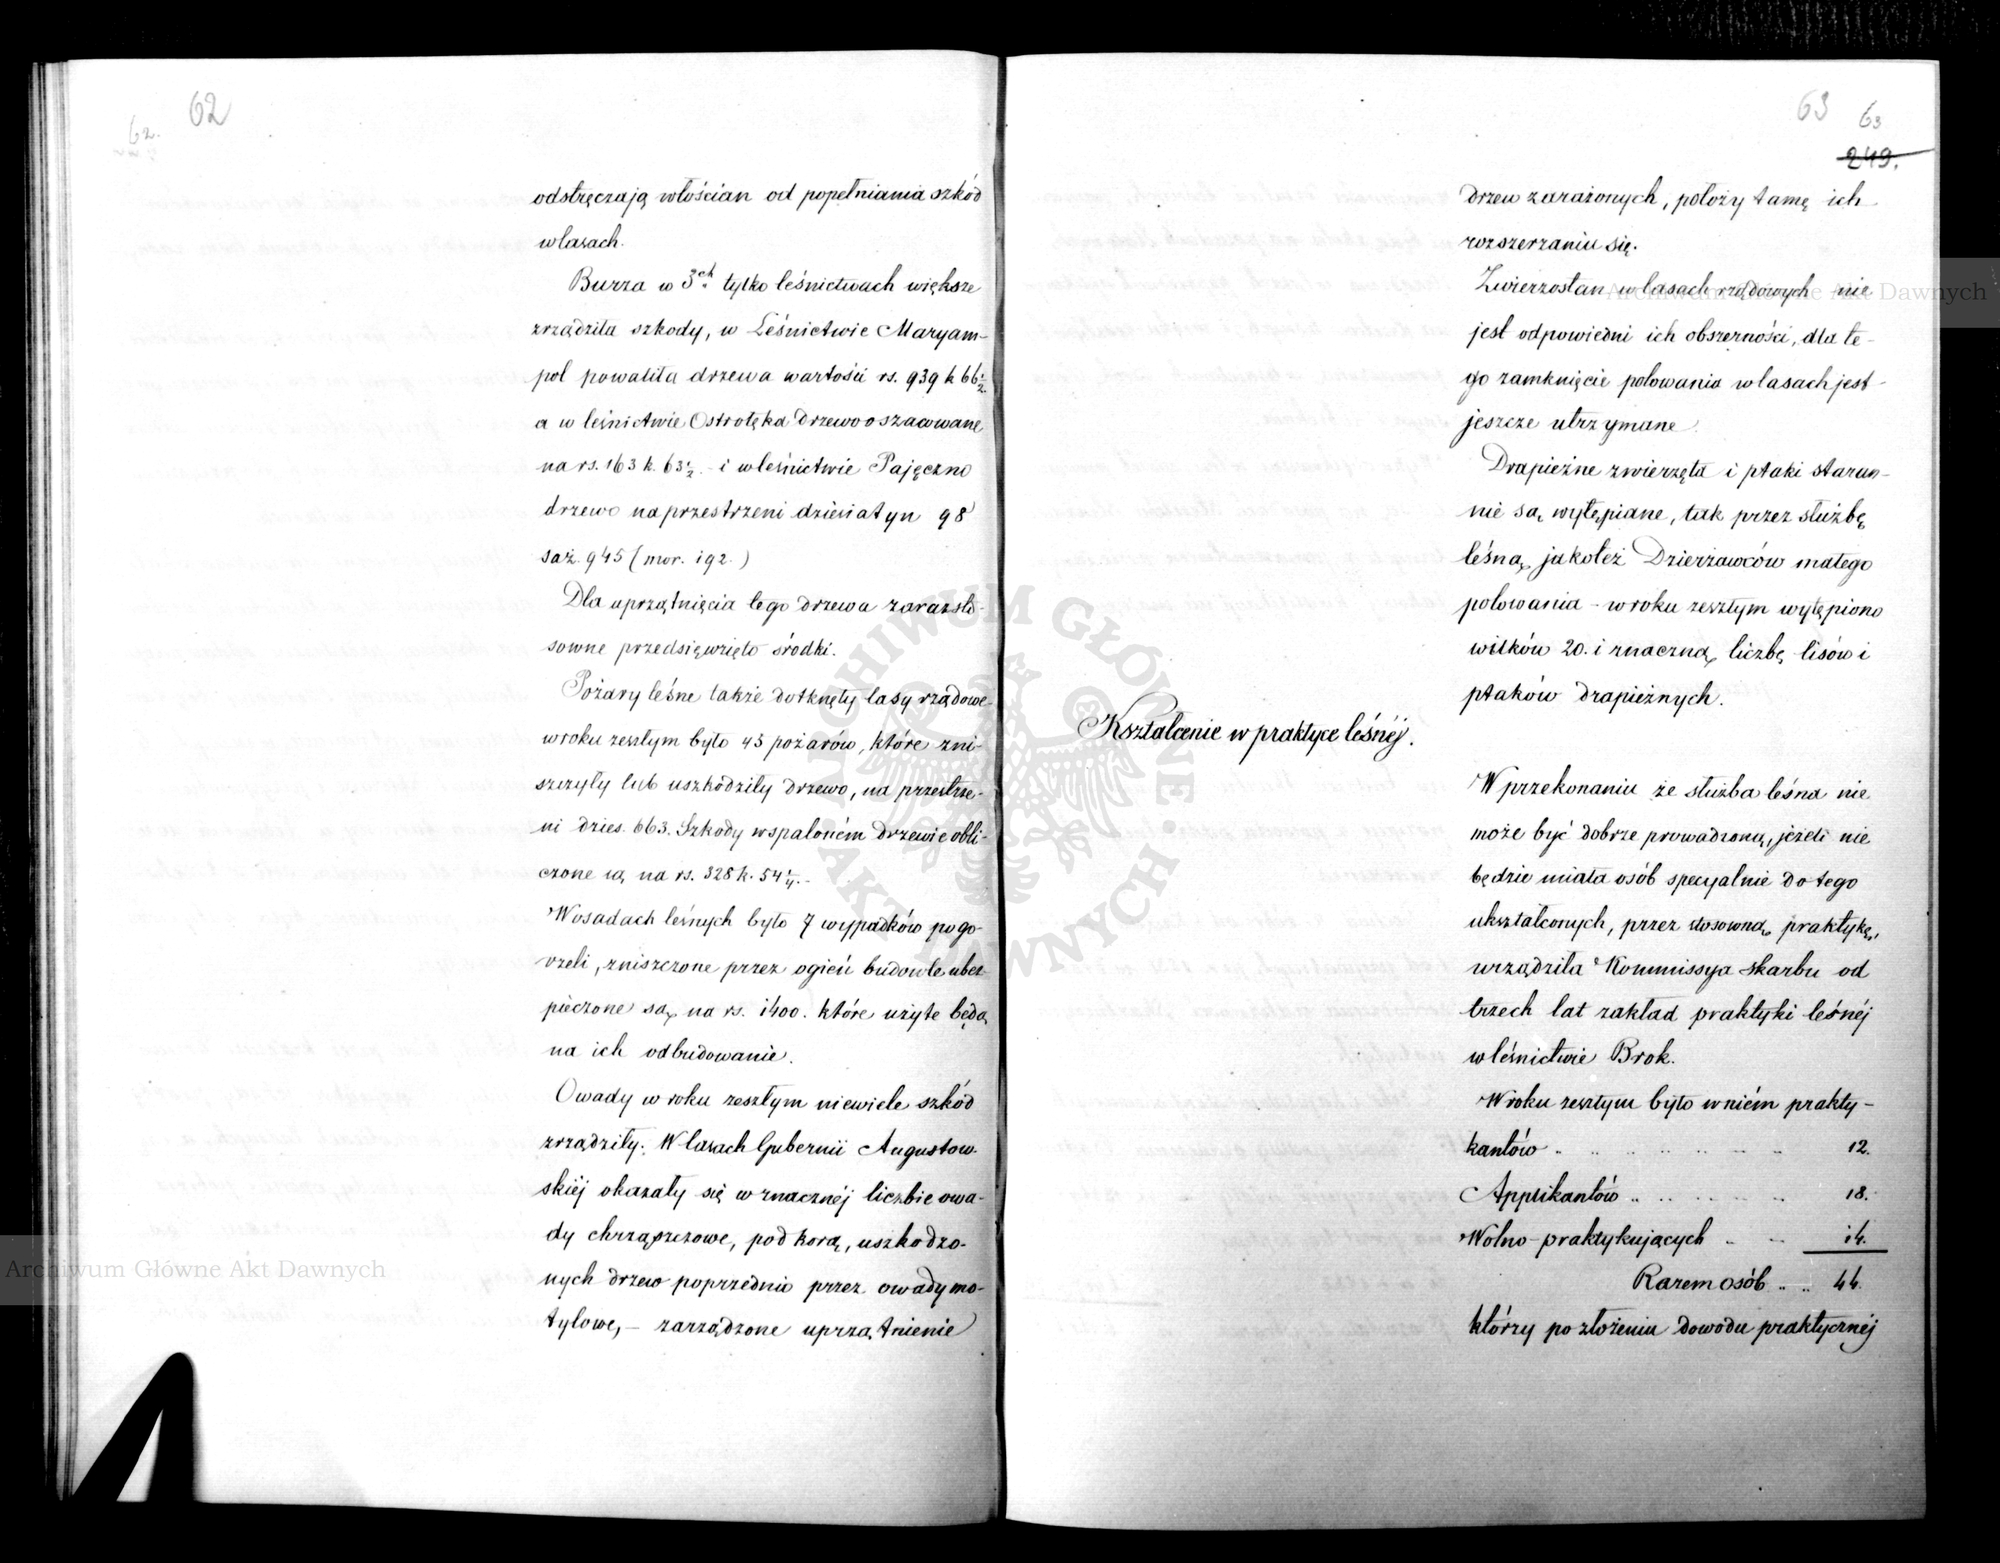 62
62.
odstręczają włościan od popełniania szkód
w lasach.
Burza w 3ch tylko leśnictwach większe
zrządziła szkody, w Leśnictwie Maryam-
pol powaliła drzewa wartości rs. 939 k 66 1/2
a w leśnictwie Ostrołęka drzewo oszacowane
na rs. 163 k. 63 1/2. - i w leśnictwie Pajęczno
drzewo na przestrzeni dziesiatyn 98
saż. 945 (mor. 192.)
Dla uprzątnięcia tego drzewa zaraz sto-
sowne przedsięwzięto środki.
Pożary leśne także dotknęły lasy rządowe
w roku zeszłym było 43 pożarów, które zni-
szczyły lub uszkodziły drzewo, na przestrze-
ni dzies. 663. Szkody w spaloném drzewie obli-
czone są na rs. 328 k. 54 1/4.-
W osadach leśnych było 7 wypadków pogo-
rzeli, zniszczone przez ogień budowle ubez-
pieczone są na rs. 1400. które użyte będą
na ich odbudowanie.
Owady w roku zeszłym niewiele szkód
zrządziły. W lasach Gubernii Augustow-
skiéj okazały się w znacznéj liczbie owa-
dy chrząszczowe, pod korą, uszkodzo-
nych drzew poprzednio przez owady mo-
tylowe, - zarządzone uprzątnienie
63
63
249.
drzew zarażonych, położy tamę ich
rozszerzaniu się.
Zwierzostan w lasach rządowych nie
jest odpowiedni ich obszerności, dla te-
go zamknięcie polowania w lasach jest
jeszcze utrzymane.
Drapieżne zwierzęta i ptaki staran-
nie są wytępiane, tak przez służbę
leśną, jakoteż Dzierżawców małego
polowania - w roku zeszłym wytępiono
wilków 20. i znaczną liczbę lisów i
ptaków drapieżnych.
Kształcenie w praktyce leśnéj.
W przekonaniu że służba leśna nie
może być dobrze prowadzoną, jeżeli nie
będzie miała osób specyalnie do tego
ukształconych, przez stosowną praktykę,
urządziła Kommissya Skarbu od
trzech lat zakład praktyki leśnéj
w leśnictwie Brok.
W roku zeszłym było w niém prakty-
kantów .. .. .. .. .. 12.
Applikantów .. .. .. .. 18.
Wolno-praktykujących .. .. 14.
Razem osób .. .. 44.
którzy po złożeniu dowodu praktycznéj
Archiwum Główne Akt Dawnych
Archiwum Główne Akt Dawnych
ARCHIWUM GŁÓWNE AKT DAWNYCH